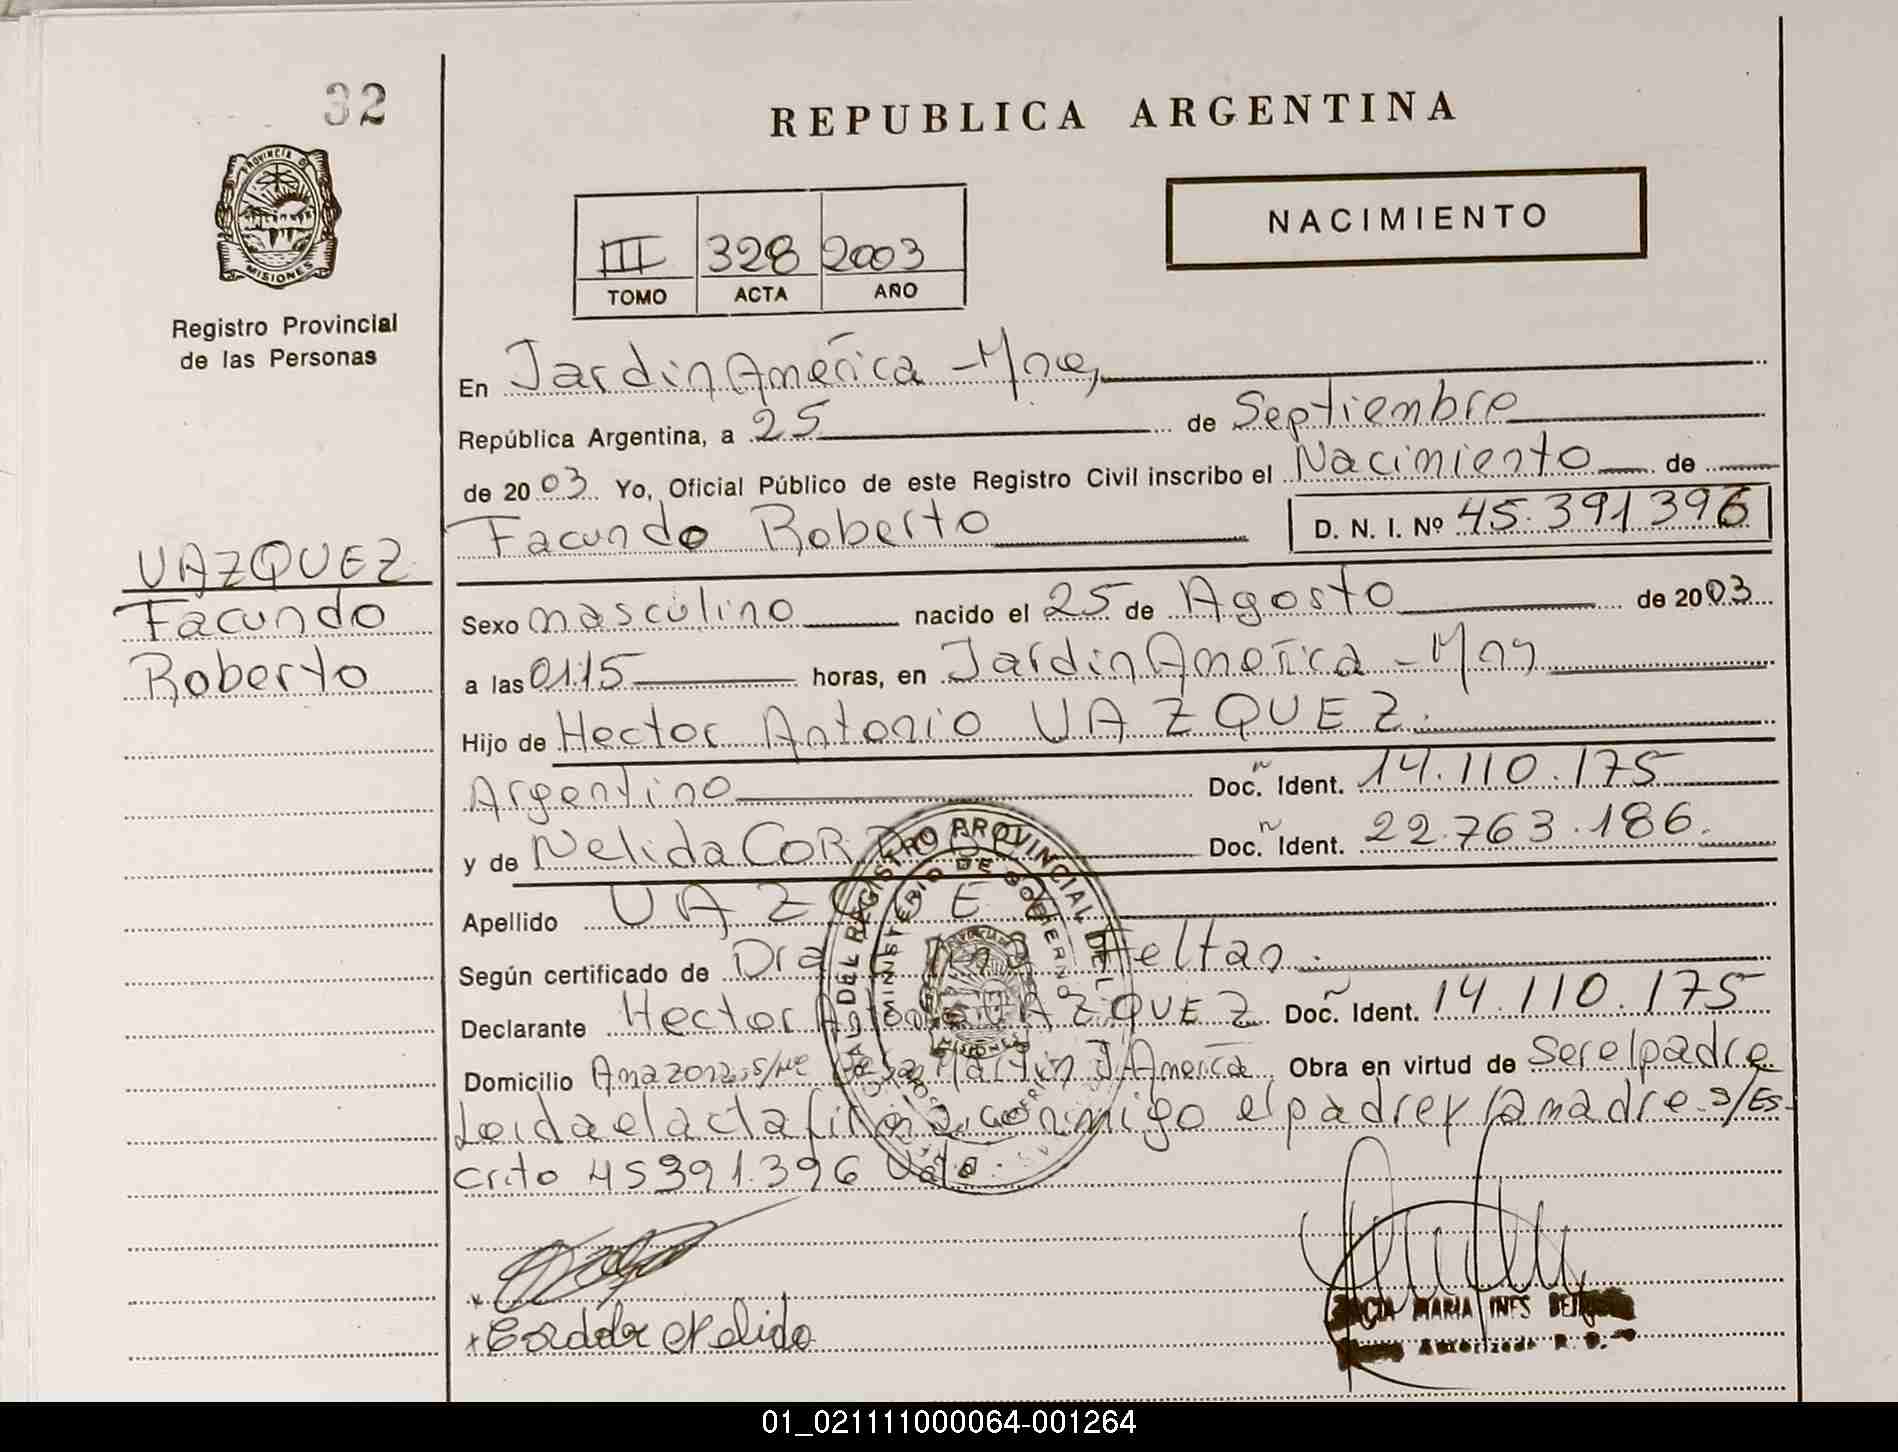 32
REPUBLICA ARGENTINA
PROVINCIA D
MISIONES
Registro Provincial
de las Personas
III 328 2003
TOMO ACTA AÑO
NACIMIENTO
En Jardin America - Mnes,
República Argentina, a 25 de Septiembre
de 2003 Yo, Oficial Público de este Registro Civil inscribo el Nacimiento de
Facundo Roberto D. N. I. Nº 45.391396
VAZQUEZ
Facundo
Roberto
Sexo masculino nacido el 25 de Agosto de 2003
a las 01:15 horas, en Jardin America - Mns
Hijo de Hector Antonio VAZQUEZ.
Argentino Doc. Ident. 14.110.175
y de Nelida COR Doc. Ident. 22.763.186.
Apellido VAZQUEZ
Según certificado de Dra Feltan.
Declarante Hector Antonio VAZQUEZ Doc. Ident. 14.110.175
Domicilio Amazonas s/nº San Martin J America Obra en virtud de Ser el padre
Leida el acta firman conmigo el padre y la madre. S/Es-
crito 45391.396 Vale
DEL REGISTRO PROVINCIAL DE L
MINISTERIO DE GOBIERNO
MISIONES
x
x Cordoba Nelida
MARIA INES
Autorizada R. P.
01_021111000064-001264